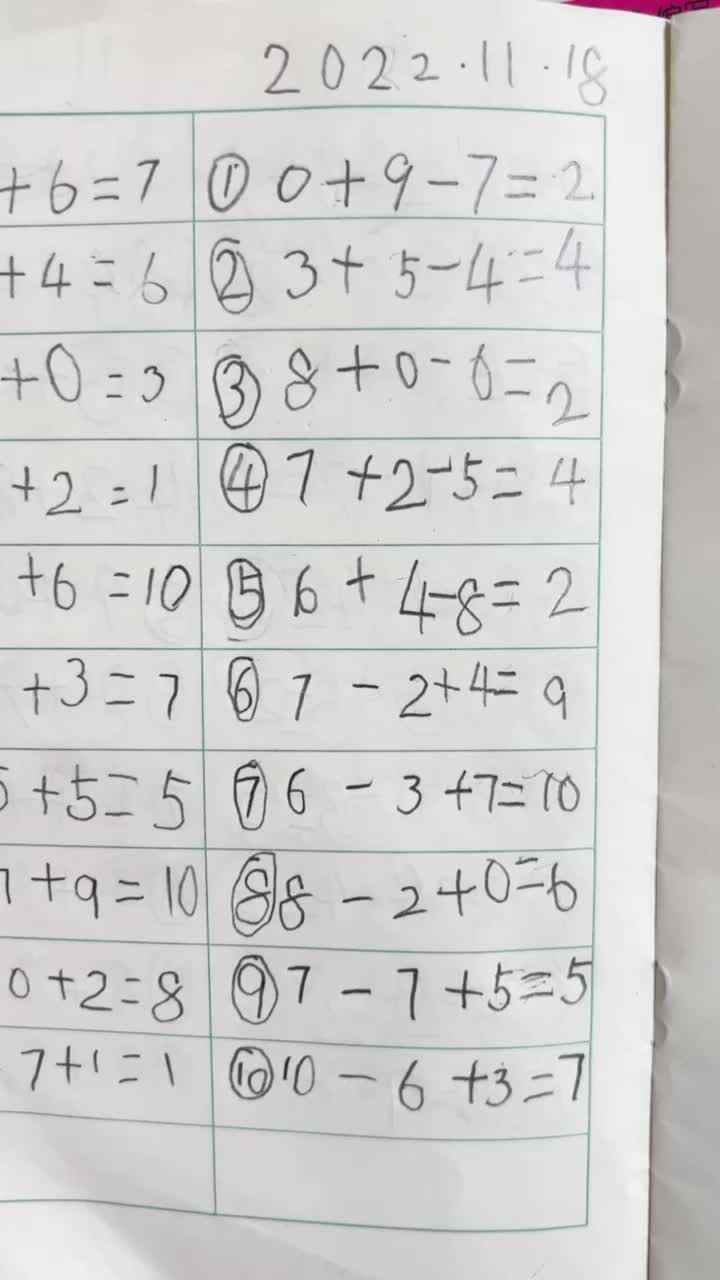 2022.11.18
+6=7 ① 0+9-7=2
+4=6 ② 3+5-4=4
+0=3 ③ 8+0-6=2
+2=1 ④ 7+2-5=4
+6=10 ⑤ 6+4-8=2
+3=7 ⑥ 7-2+4=9
5+5=5 ⑦ 6-3+7=10
+9=10 ⑧ 8-2+0=6
0+2=8 ⑨ 7-7+5=5
7+1=1 ⑩ 10-6+3=7